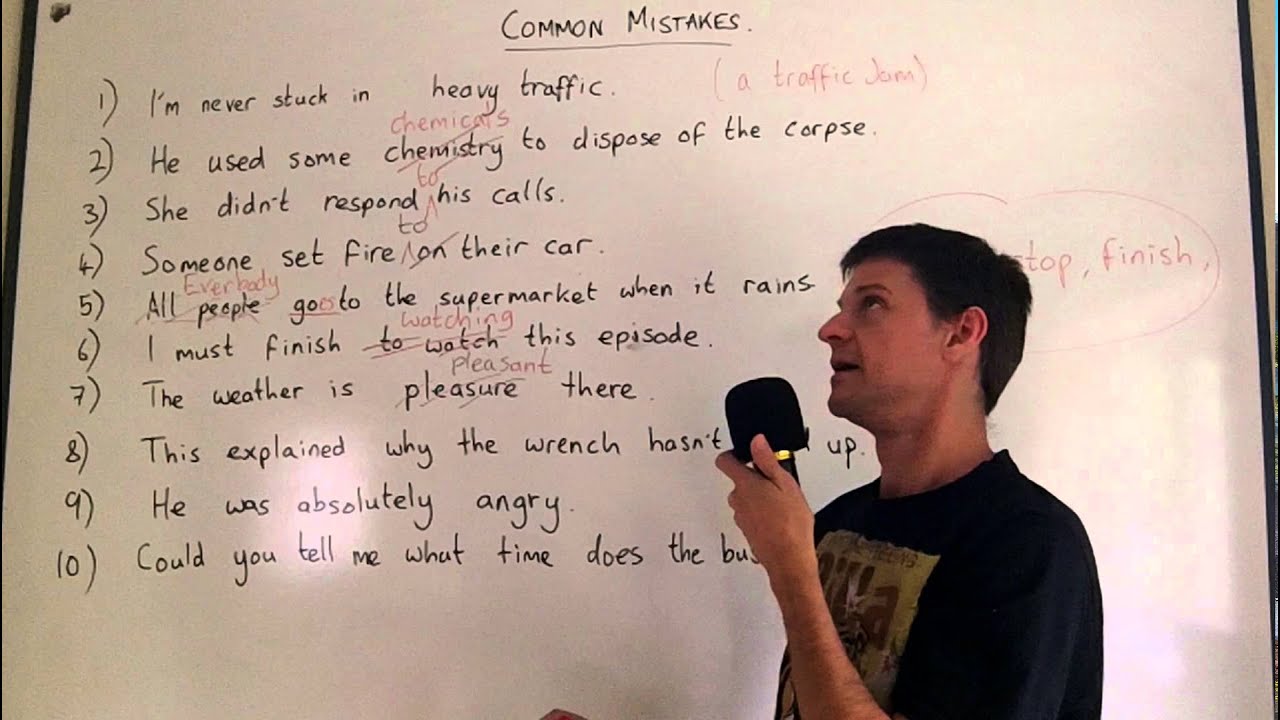 COMMON MISTAKES.
1) I'm never stuck in heavy traffic. (a traffic Jam)
chemicals
2) He used some chemistry to dispose of the corpse.
to
3) She didn't respond his calls.
to
4) Someone set fire on their car.
Everbody
5) All people goes to the supermarket when it rains
watching
6) I must finish to watch this episode.
pleasant
7) The weather is pleasure there.
8) This explained why the wrench hasn't up.
9) He was absolutely angry.
10) Could you tell me what time does the bus
stop, finish,